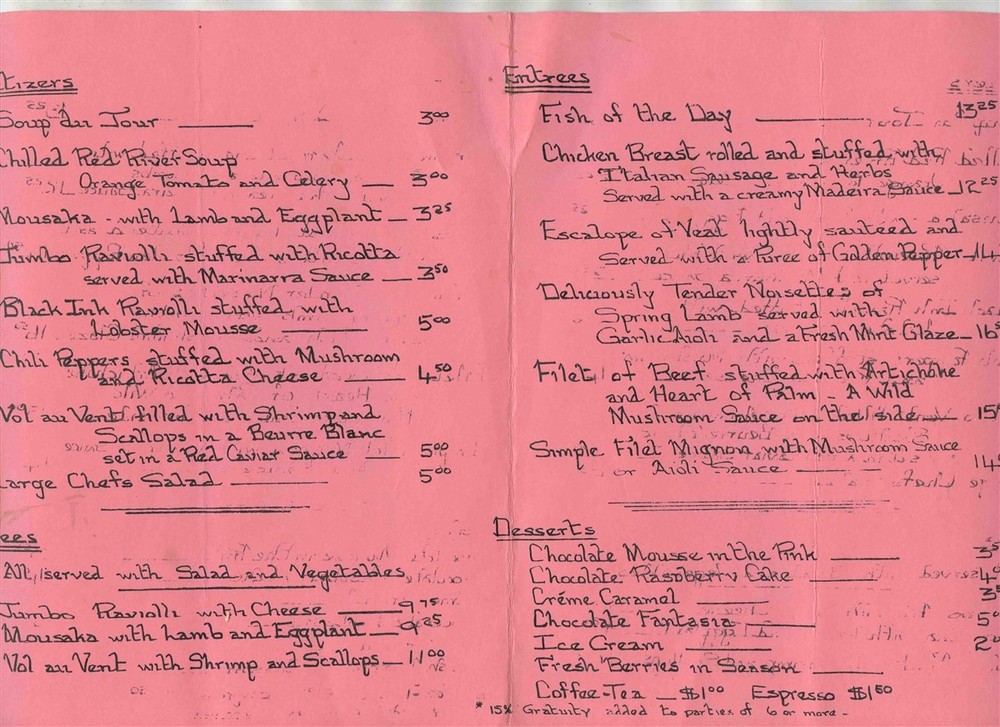 tizers
Soup du Jour 3.00
Chilled Red River Soup
Orange Tomato and Celery 3.00
Mousaka - with Lamb and Eggplant 3.25
Jumbo Raviolli stuffed with Ricotta
served with Marinarra Sauce 3.50
Black Ink Raviolli stuffed with
Lobster Mousse 5.00
Chili Peppers stuffed with Mushroom
and Ricotta Cheese 4.50
Vol au Vent filled with Shrimp and
Scallops in a Beurre Blanc
set in a Red Caviar Sauce 5.00
Large Chefs Salad 5.00
ees
All served with Salad and Vegetables
Jumbo Raviolli with Cheese 9.75
Mousaka with Lamb and Eggplant 9.25
Vol au Vent with Shrimp and Scallops 11.00
Entrees
Fish of the Day 13.25
Chicken Breast rolled and stuffed with
Italian Sausage and Herbs
Served with a creamy Madeira Sauce 12.25
Escalope of Veal lightly sauteed and
Served with a Puree of Golden Pepper 14
Deliciously Tender Noisettes of
Spring Lamb served with
Garlic Aioli and a Fresh Mint Glaze 16
Filet of Beef stuffed with Artichoke
and Heart of Palm - A Wild
Mushroom Sauce on the side 15
Simple Filet Mignon with Mushroom Sauce
or Aioli Sauce 14
Desserts
Chocolate Mousse in the Pink 3
Chocolate Raspberry Cake 4
Créme Caramel 3
Chocolate Fantasia 5
Ice Cream 2
Fresh Berries in Season
Coffee-Tea $1.00 Espresso $1.50
* 15% Gratuity added to parties of 6 or more -